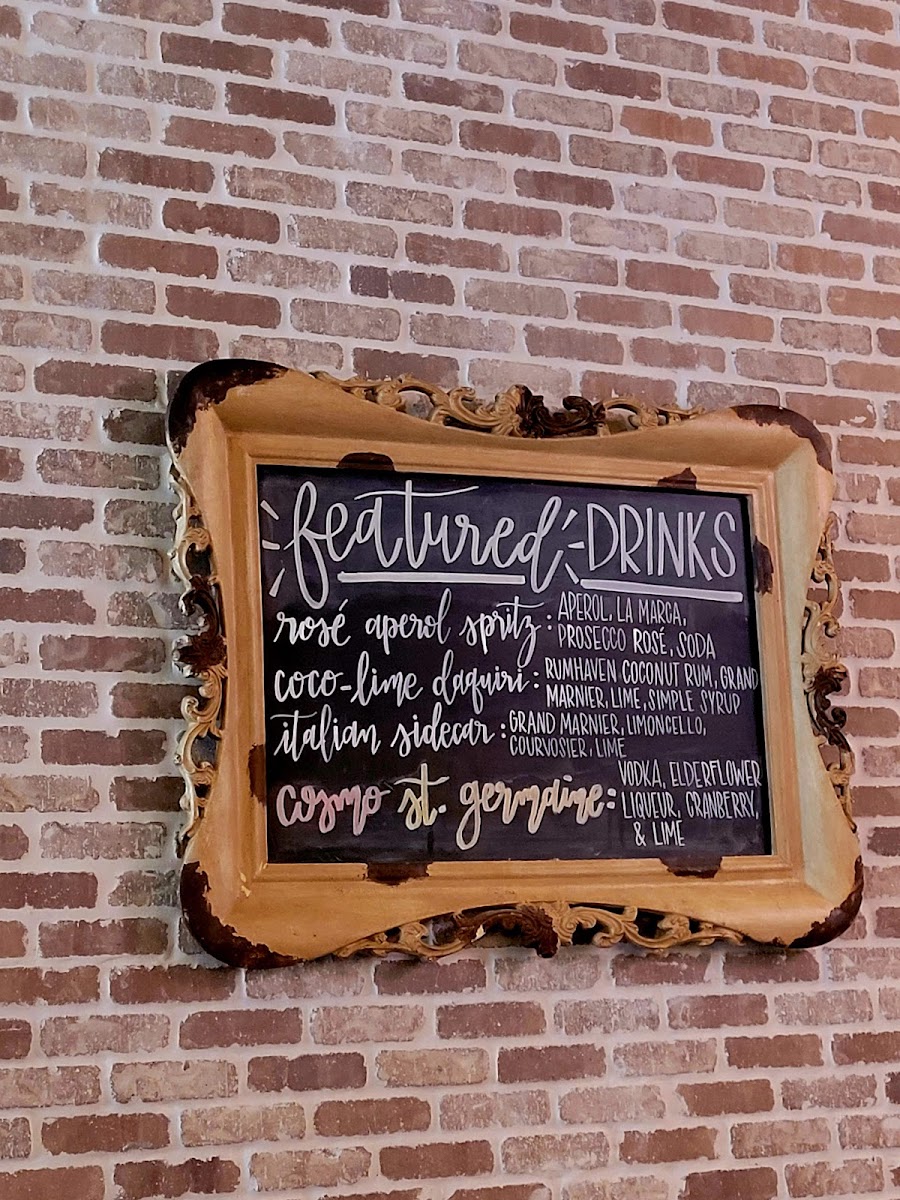 featured DRINKS
rosé aperol spritz: APEROL, LA MARCA,
PROSECCO ROSÉ, SODA
coco-lime daquiri: RUMHAVEN COCONUT RUM, GRAND
MARNIER, LIME, SIMPLE SYRUP
italian sidecar: GRAND MARNIER, LIMONCELLO,
COURVOSIER, LIME
cosmo st. germaine: VODKA, ELDERFLOWER
LIQUEUR, CRANBERRY,
& LIME